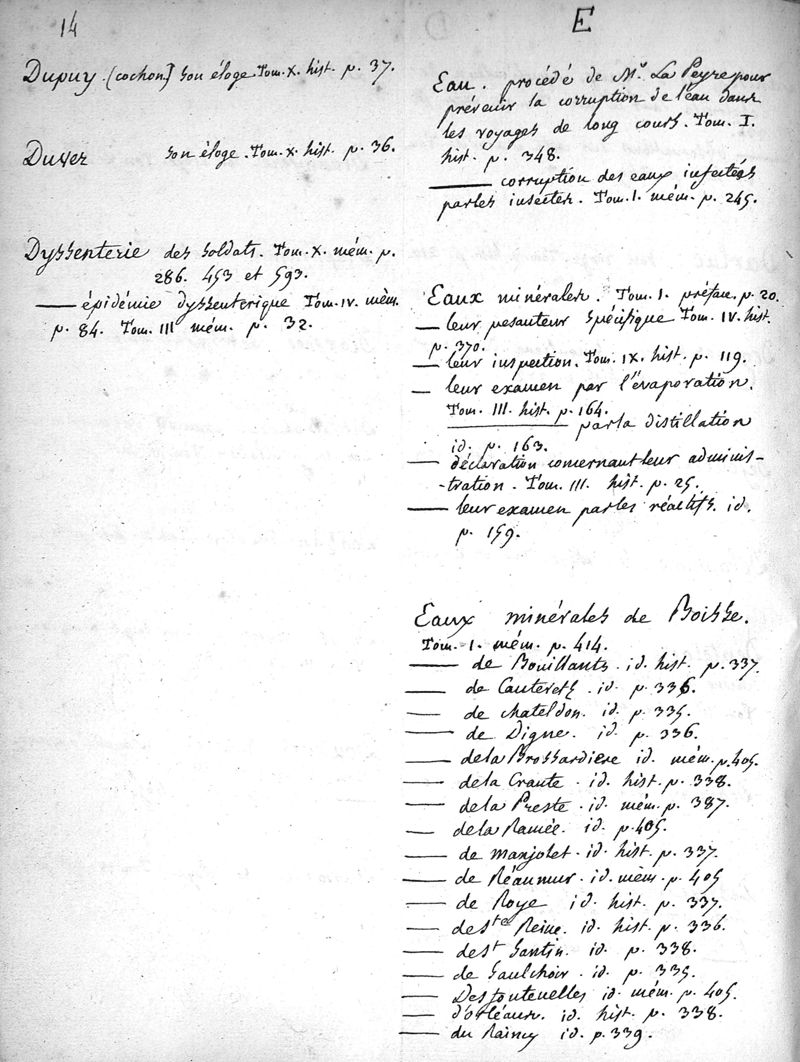 14
Dupuy. (cochon) son éloge. Tom. X. hist. p. 37.
Duver son éloge. Tom. X. hist. p. 36.
Dyssenterie des soldats. Tom. X. mém. p.
286. 453 et 593.
— épidémie dyssenterique Tom. IV. mém.
p. 84. Tom. III mém. p. 32.
E
Eau. procédé de Mr. La Peyre pour
prévenir la corruption de l'eau dans
les voyages de long cours. Tom. I.
hist. p. 348.
— corruption des eaux infectées
par les insectes. Tom. I. mém. p. 245.
Eaux minérales. Tom. I. préface. p. 20.
— leur pesanteur spécifique Tom. IV. hist.
p. 370.
— leur inspection. Tom. IX. hist. p. 119.
— leur examen par l'évaporation.
Tom. III. hist. p. 164.
— par la distillation
id. p. 163.
— déclaration concernant leur adminis-
-tration. Tom. III. hist. p. 25.
— leur examen par les réactifs. id.
p. 159.
Eaux minérales de Boisse.
Tom. I. mém. p. 414.
— de Bouillants. id. hist. p. 337.
— de Cauterets. id. p. 336.
— de chateldon. id. p. 335.
— de Digne. id. p. 336.
— de la Brossardiere id. mém. p. 405.
— de la Craute. id. hist. p. 338.
— de la Preste. id. mém. p. 387.
— de la Ramée. id. p. 405.
— de Manjolet. id. hist. p. 337.
— de Réaumur. id. mém. p. 405
— de Roye id. hist. p. 337.
— de Ste Reine. id. hist. p. 336.
— de St Santin. id. p. 338.
— de Saulchoir. id. p. 335.
— Des fontenelles id. mém. p. 405.
— d'orléans. id. hist. p. 338.
— du Raincy id. p. 339.